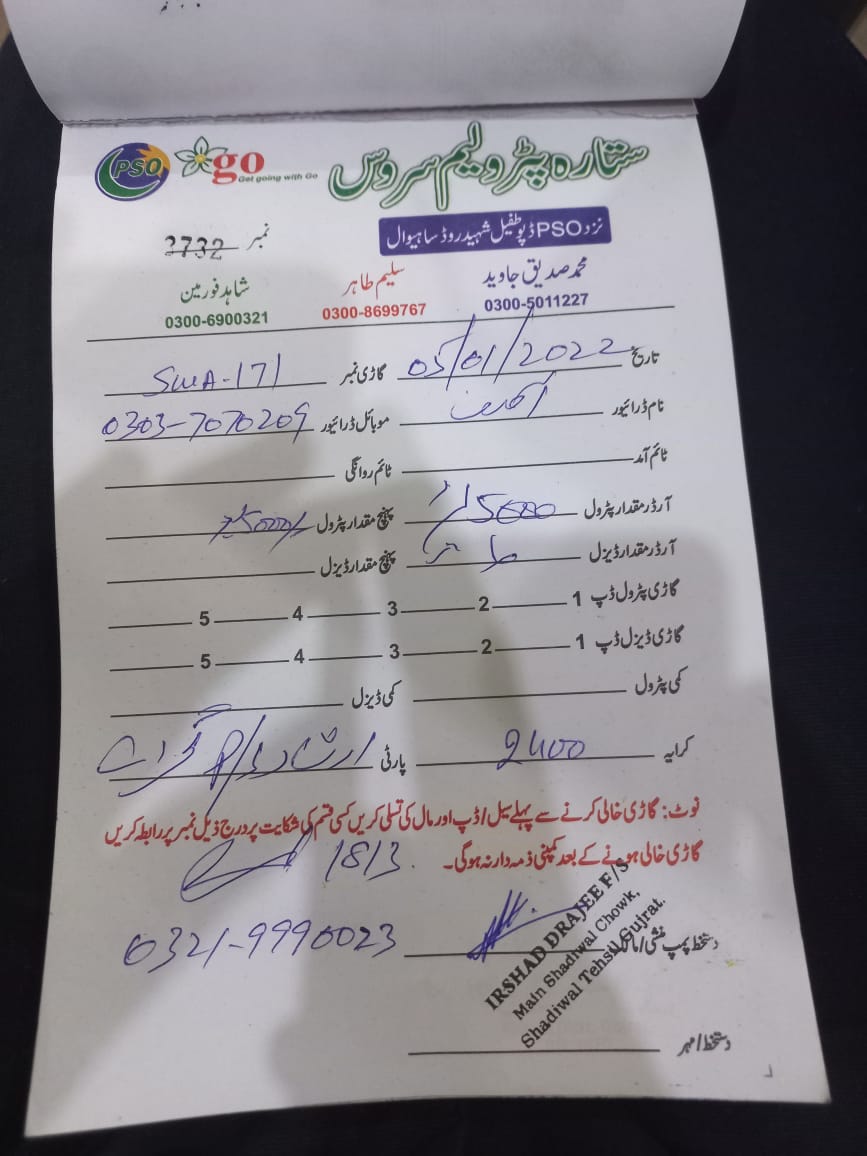 ستارہ پٹرولیم سروس
PSO go
Get going with Go
نزد PSO ڈپو طفیل شہید روڈ ساہیوال
نمبر 3732
محمد صدیق جاوید سلیم طاہر شاہد فورمین
0300-5011227 0300-8699767 0300-6900321
تاریخ 05/01/2022 گاڑی نمبر SWA-171
نام ڈرائیور موبائل ڈرائیور 0303-7070209
ٹائم آمد ٹائم روانگی
آرڈر مقدار پٹرول پہنچ مقدار پٹرول
آرڈر مقدار ڈیزل پہنچ مقدار ڈیزل
گاڑی پٹرول ڈپ 1 2 3 4 5
گاڑی ڈیزل ڈپ 1 2 3 4 5
کمی پٹرول کمی ڈیزل
کرایہ 2400 پارٹی
نوٹ: گاڑی خالی کرنے سے پہلے سیل/ڈپ اور مال کی تسلی کریں کسی قسم کی شکایت پر درج ذیل نمبر پر رابطہ کریں
گاڑی خالی ہونے کے بعد کمپنی ذمہ دار نہ ہوگی۔
1813
0321-9990023
دستخط پمپ منشی/مالک
IRSHAD DRAJEE F/S
Main Shadiwal Chowk,
Shadiwal Tehsil Gujrat.
دستخط/مہر